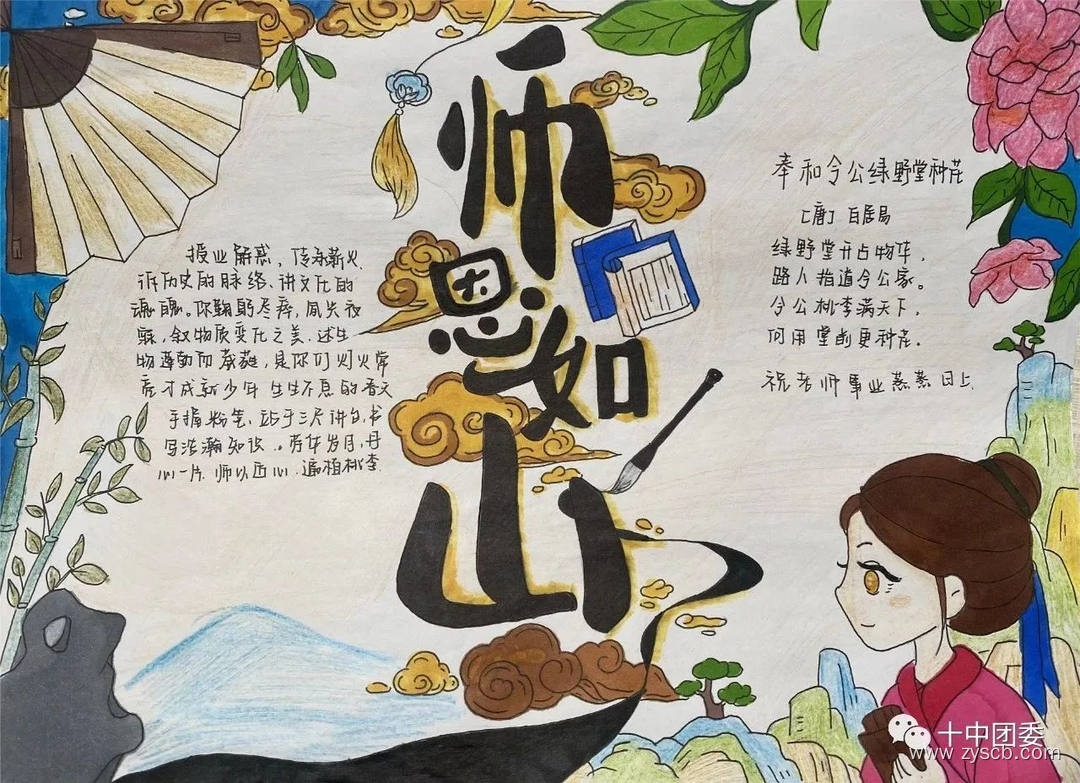 师恩如山
授业解惑，传承薪火
诉历史的脉络、讲文化的
魂魄。你鞠躬尽瘁，夙兴夜
寐，叙物质变化之美、述生
物动而葳蕤，是你们灯火常
亮才成就少年生生不息的春天
手握粉笔、站于三尺讲台，书
写浩瀚知识。芳华岁月，丹
心一片，师以匠心，遍植桃李
奉和令公绿野堂种花
[唐] 白居易
绿野堂开占物华，
路人指道令公家。
令公桃李满天下，
何用堂前更种花。
祝老师事业蒸蒸日上
十中团委
www.zyscb.com